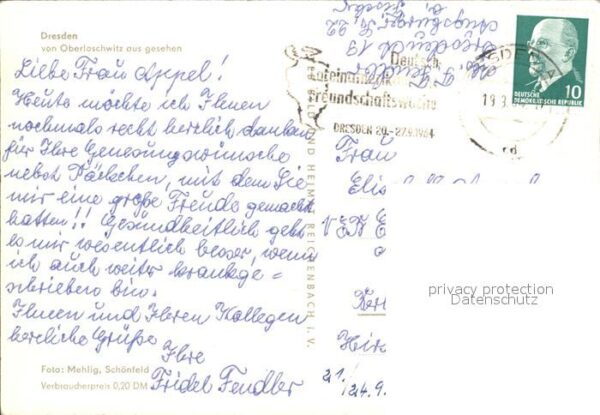 Dresden
von Oberloschwitz aus gesehen
Liebe Frau Appel!
Heute möchte ich Ihnen
nochmals recht herzlich danken
für Ihre Genesungswünsche
nebst Päckchen, mit dem Sie
mir eine große Freude gemacht
hatten!! Gesundheitlich geht
es mir wesentlich besser, wenn
ich auch weiter krankge=
schrieben bin.
Ihnen und Ihren Kollegen
herzliche Grüße
Ihre
Fridel Fendler
Foto: Mehlig, Schönfeld
Verbraucherpreis 0,20 DM
BILD UND HEIMAT REICHENBACH i. V.
Deutsch
Lateinamerikanische
Freundschaftswoche
DRESDEN 20.-27.9.1964
10
DEUTSCHE
DEMOKRATISCHE REPUBLIK
Frau
VEB E
privacy protection
Datenschutz
21.
/24.9.